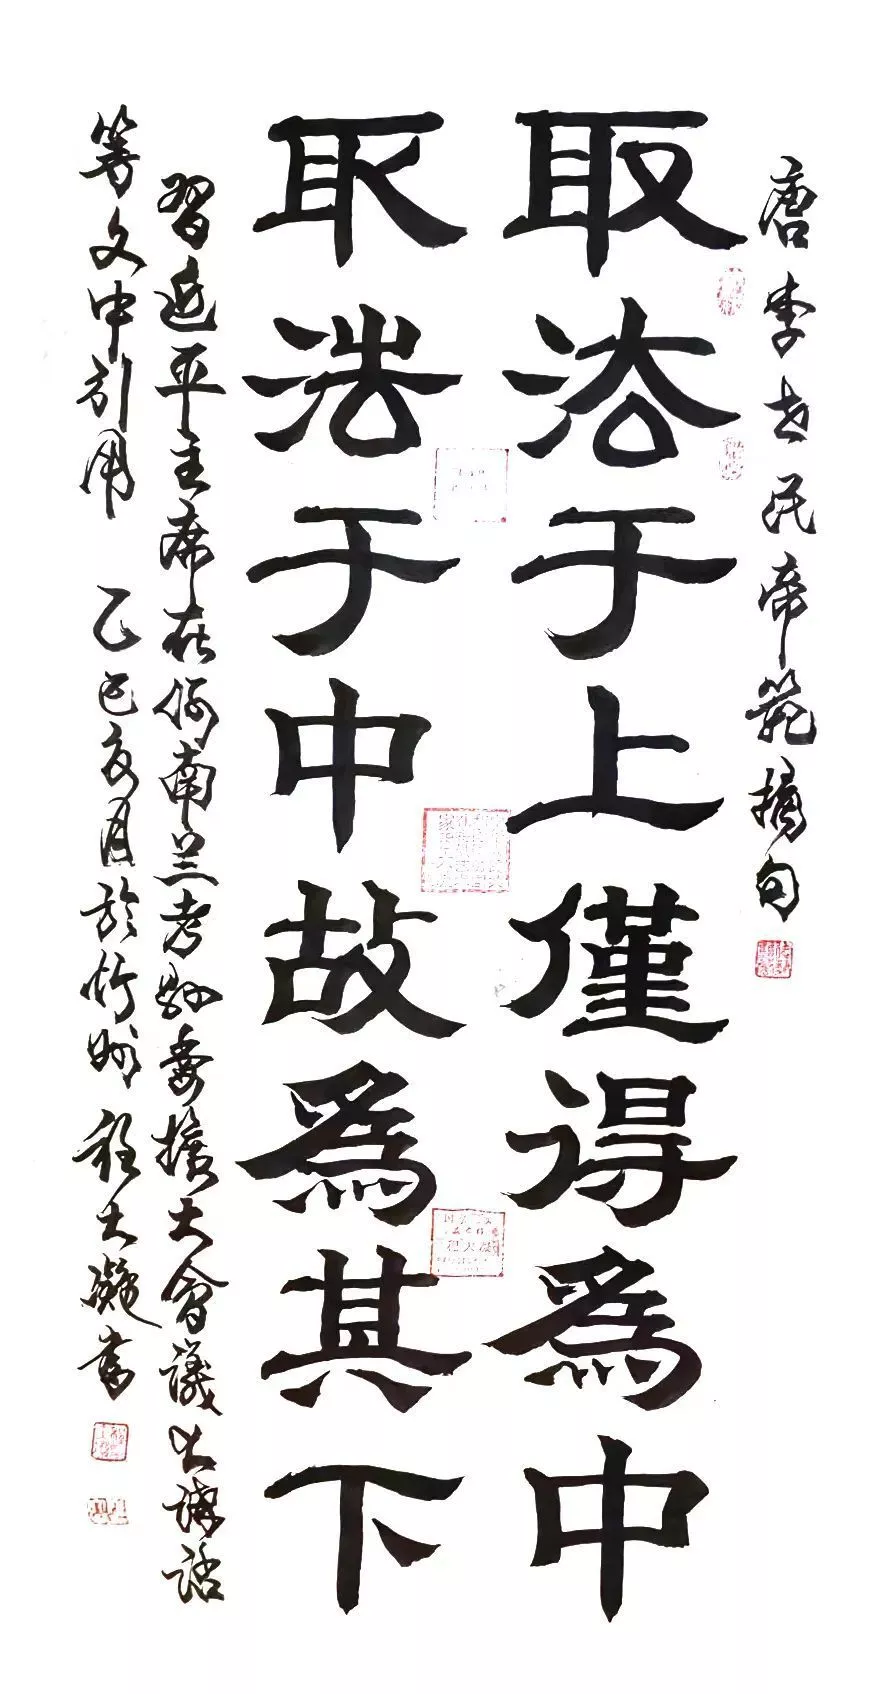 唐李世民帝範摘句
取法于上僅得爲中
取法于中故爲其下
習近平主席在河南兰考縣委擴大會議上講話
等文中引用 乙巳夏月於忻州 程大凝書